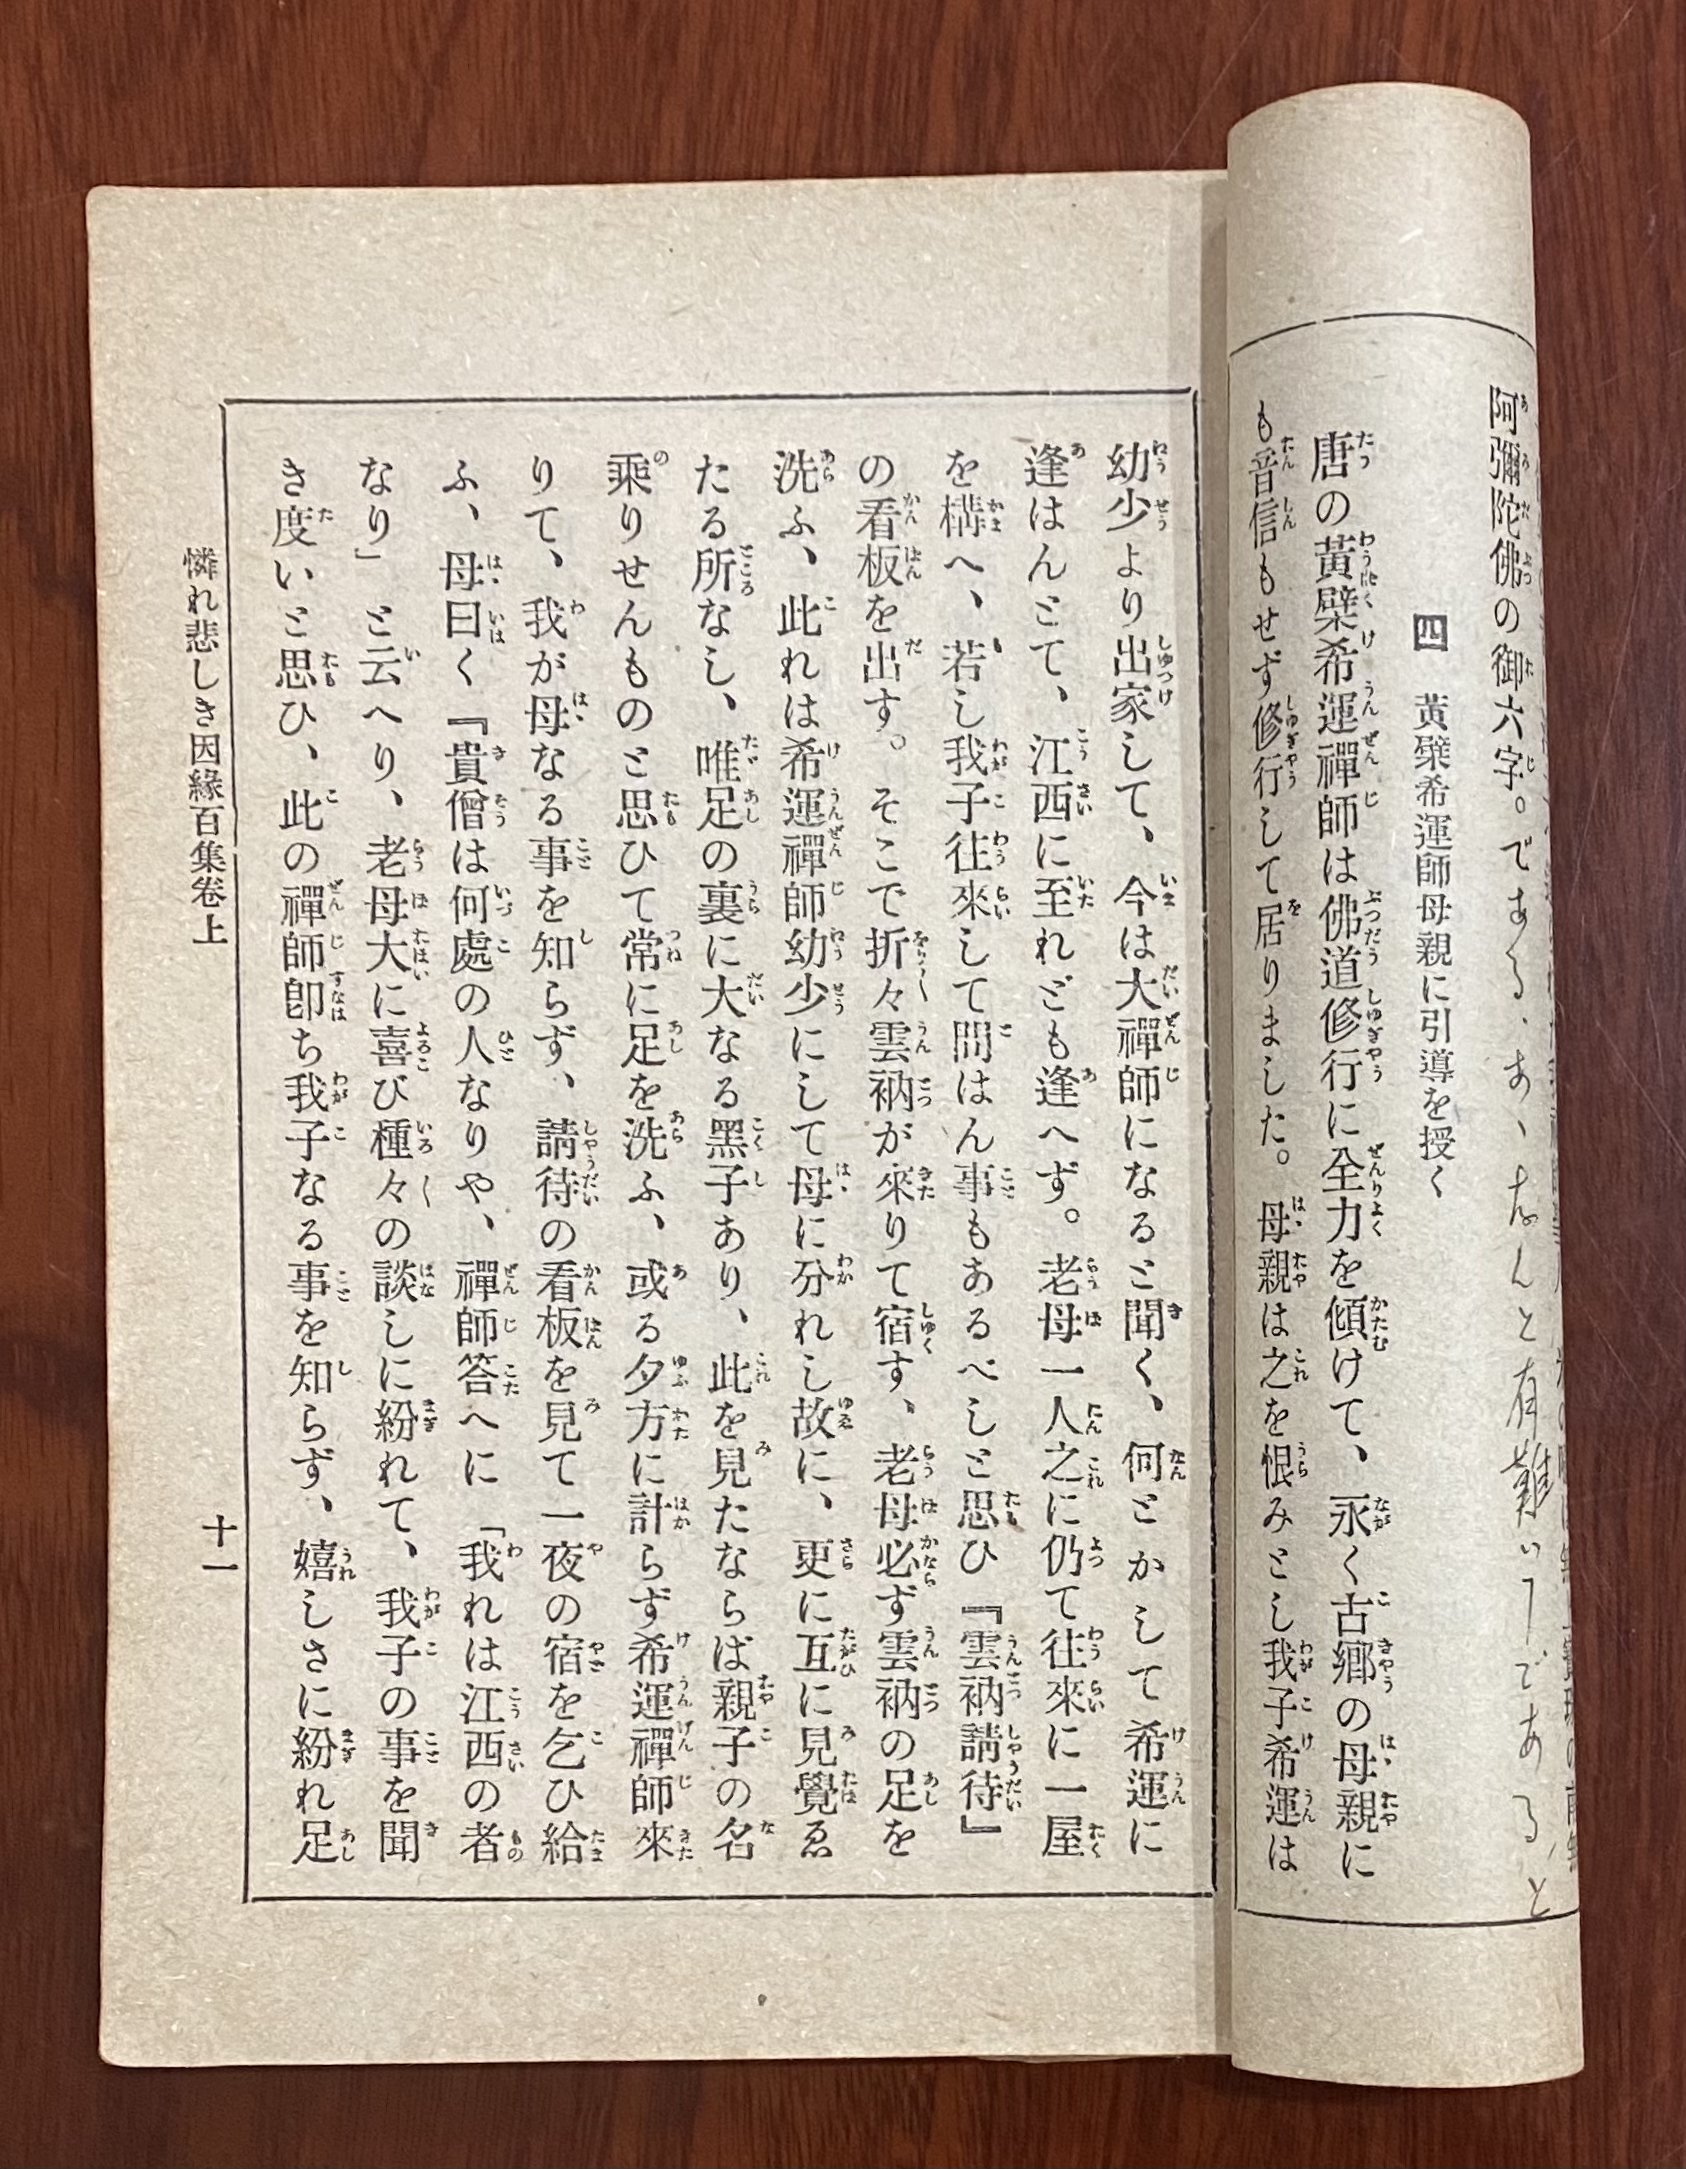 阿彌陀佛の御六字。である、あゝなんと有難い了である、と
四　黃檗希運師母親に引導を授く
唐の黃檗希運禪師は佛道修行に全力を傾けて、永く古鄕の母親に
も音信もせず修行して居りました。母親は之を恨みとし我子希運は
幼少より出家して、今は大禪師になると聞く、何とかして希運に
逢はんとて、江西に至れども逢へず。老母一人之に仍て往來に一屋
を構へ、若し我子往來して問はん事もあるべしと思ひ『雲衲請待』
の看板を出す。そこで折々雲衲が來りて宿す、老母必ず雲衲の足を
洗ふ、此れは希運禪師幼少にして母に分れし故に、更に互に見覺ゑ
たる所なし、唯足の裏に大なる黑子あり、此を見たならば親子の名
乘りせんものと思ひて常に足を洗ふ、或る夕方に計らず希運禪師來
りて、我が母なる事を知らず、請待の看板を見て一夜の宿を乞ひ給
ふ、母曰く『貴僧は何處の人なりや、禪師答へに「我れは江西の者
なり」と云へり、老母大に喜び種々の談しに紛れて、我子の事を聞
き度いと思ひ、此の禪師卽ち我子なる事を知らず、嬉しさに紛れ足
憐れ悲しき因緣百集卷上
十一